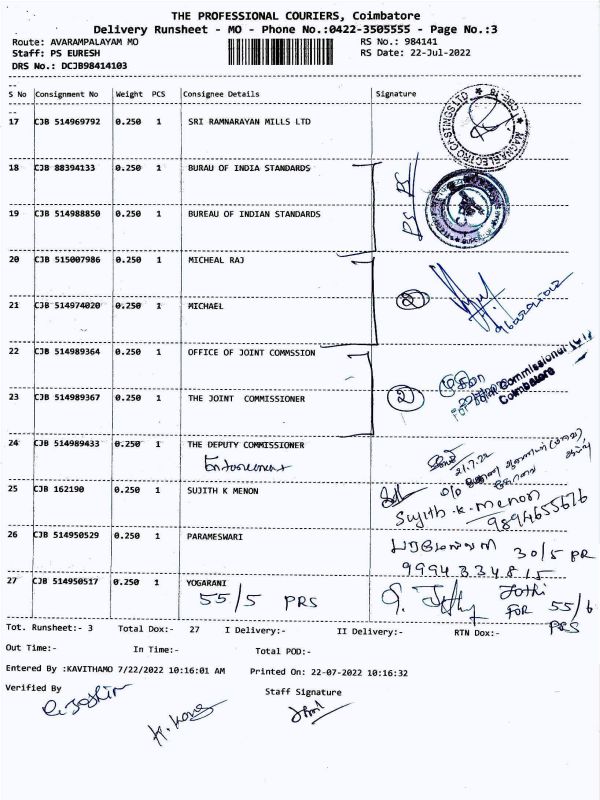 THE PROFESSIONAL COURIERS, Coimbatore
Delivery Runsheet - MO - Phone No.:0422-3505555 - Page No.:3
Route: AVARAMPALAYAM MO RS No.: 984141
Staff: PS EURESH RS Date: 22-Jul-2022
DRS No.: DCJB98414103
S No Consignment No Weight PCS Consignee Details Signature
17 CJB 514969792 0.250 1 SRI RAMNARAYAN MILLS LTD
18 CJB 88394133 0.250 1 BURAU OF INDIA STANDARDS
19 CJB 514988850 0.250 1 BUREAU OF INDIAN STANDARDS
20 CJB 515007986 0.250 1 MICHEAL RAJ
21 CJB 514974020 0.250 1 MICHAEL 2
22 CJB 514989364 0.250 1 OFFICE OF JOINT COMMSSION
Commissioner
Coimbatore
23 CJB 514989367 0.250 1 THE JOINT COMMISSIONER 2
24 CJB 514989433 0.250 1 THE DEPUTY COMMISSIONER
21.7.22
25 CJB 162190 0.250 1 SUJITH K MENON
Sujith.K.Menon
9894655676
26 CJB 514950529 0.250 1 PARAMESWARI
30/5 PR
9994334815
27 CJB 514950517 0.250 1 YOGARANI
55/5 PRS
Jothi
FOR 55/6
PRS
Tot. Runsheet:- 3 Total Dox:- 27 I Delivery:- II Delivery:- RTN Dox:-
Out Time:- In Time:- Total POD:-
Entered By :KAVITHAMO 7/22/2022 10:16:01 AM Printed On: 22-07-2022 10:16:32
Verified By Staff Signature